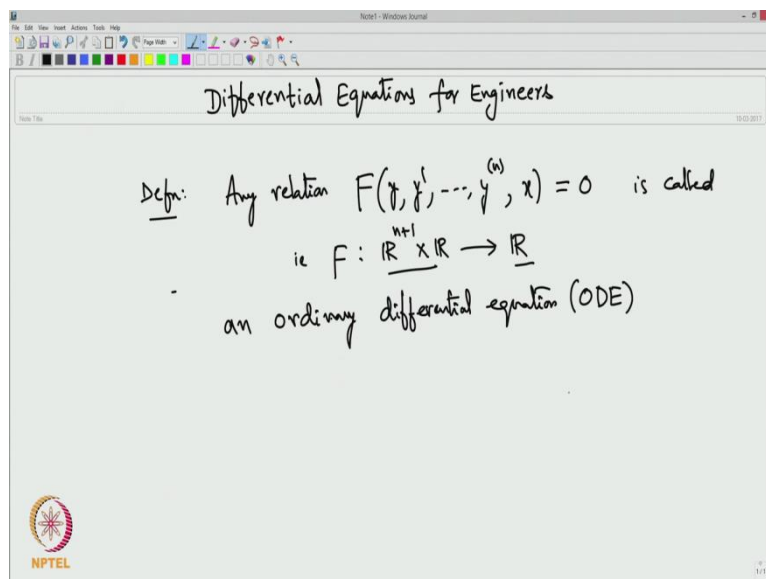 Note1 - Windows Journal
File Edit View Insert Actions Tools Help
Page Width
B I
Differential Equations for Engineers
Note Title
10-03-2017
Defn: Any relation F(y, y', ---, y^(n), x) = 0 is called
ie F : ℝ^{n+1} × ℝ → ℝ
an ordinary differential equation (ODE)
NPTEL
1/1